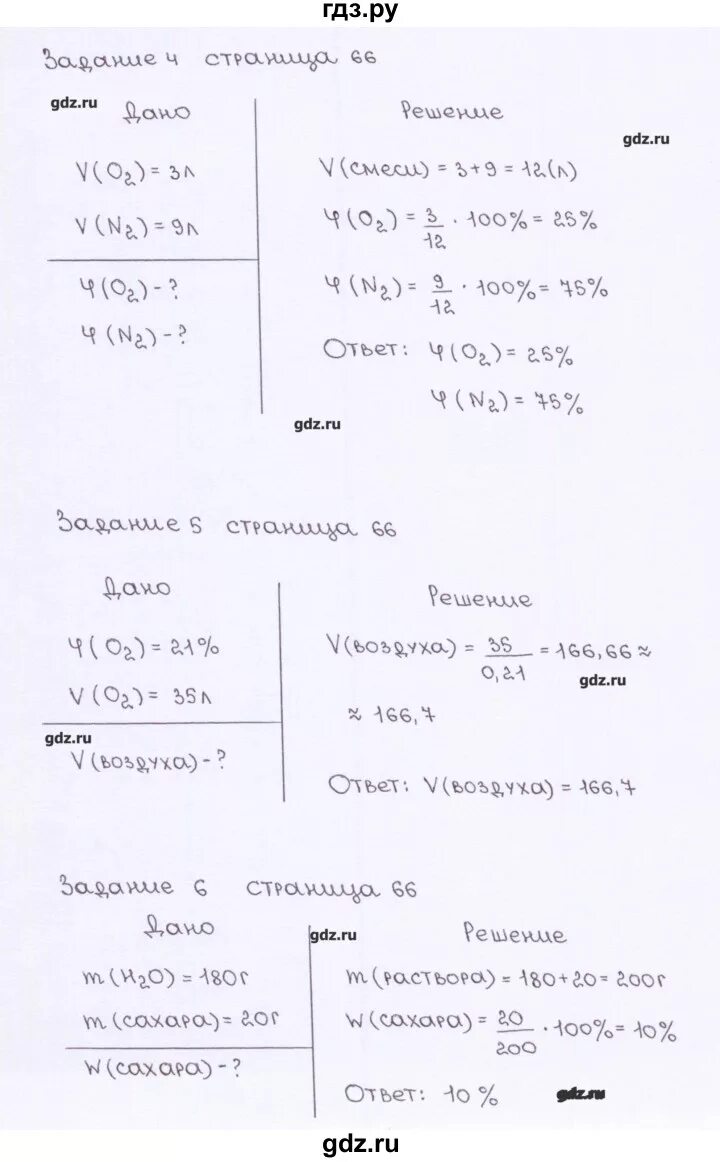 гдз.ру
Задание 4 страница 66
gdz.ru
Дано
Решение
gdz.ru
V(O₂) = 3л
V(N₂) = 9л
φ(O₂) - ?
φ(N₂) - ?
V(смеси) = 3+9 = 12(л)
φ(O₂) = 3/12 · 100% = 25%
φ(N₂) = 9/12 · 100% = 75%
Ответ: φ(O₂) = 25%
φ(N₂) = 75%
gdz.ru
Задание 5 страница 66
Дано
Решение
φ(O₂) = 21%
V(O₂) = 35л
gdz.ru
V(воздуха) - ?
V(воздуха) = 35/0,21 = 166,66 ≈
gdz.ru
≈ 166,7
Ответ: V(воздуха) = 166,7
Задание 6 страница 66
Дано
gdz.ru
Решение
m(H₂O) = 180г
m(сахара) = 20г
W(сахара) - ?
m(раствора) = 180+20 = 200г
W(сахара) = 20/200 · 100% = 10%
Ответ: 10%
gdz.ru
gdz.ru